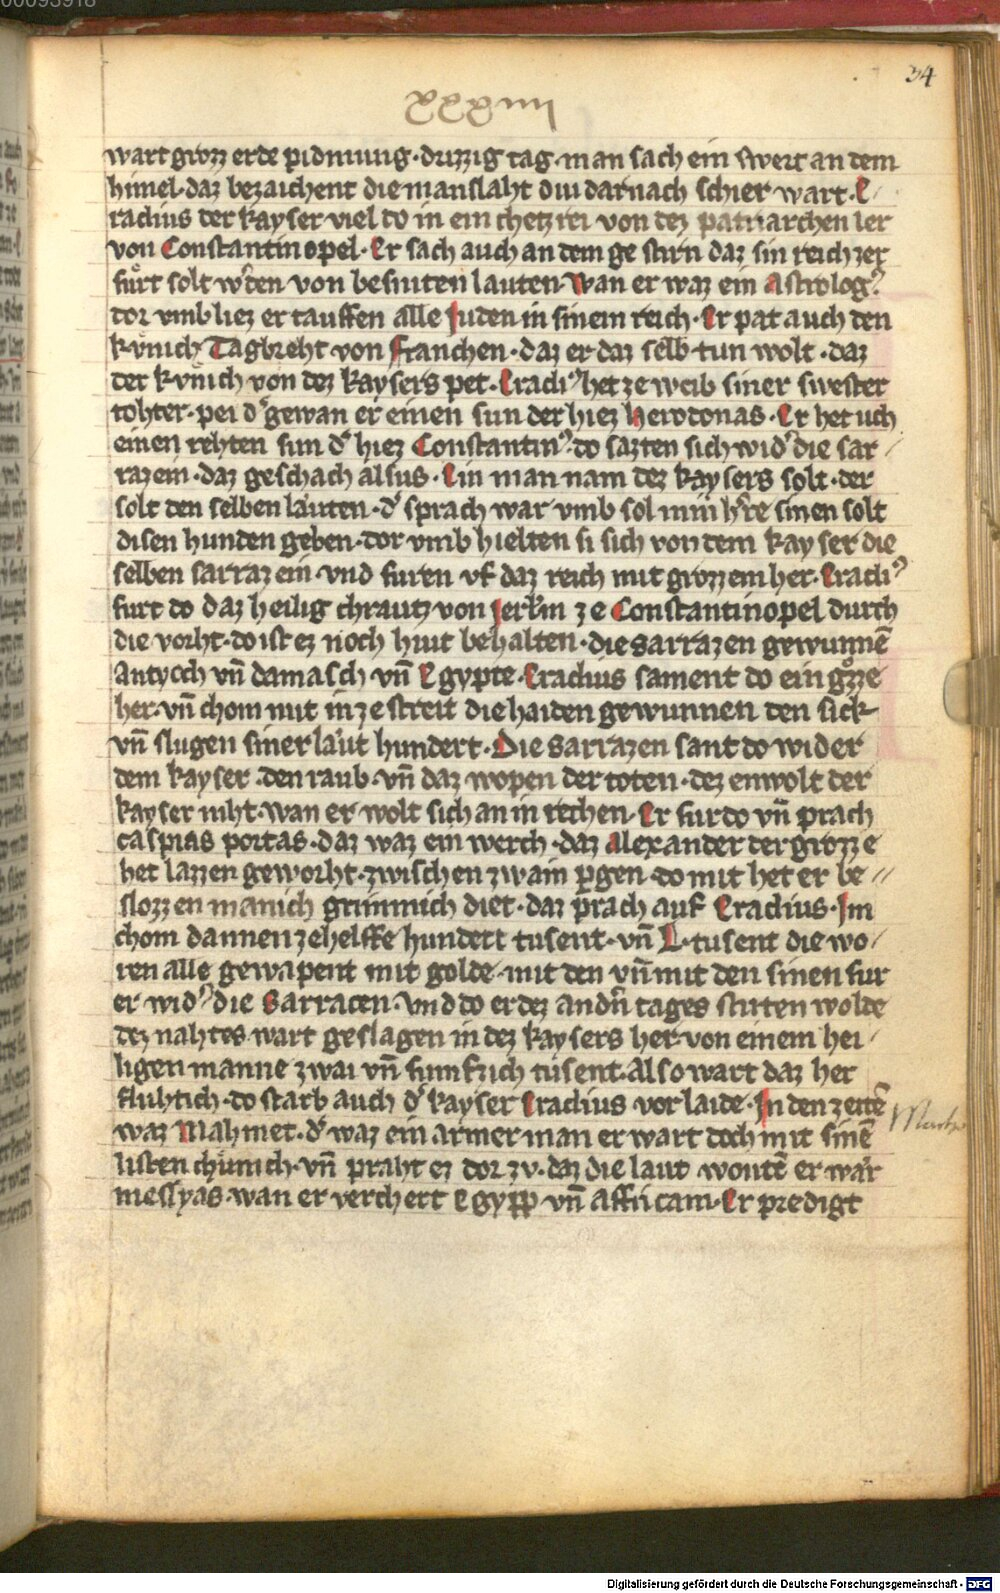 00093918
34
xxxiiii
wart grozz erde pidmung · drizzig tag · man sach ein swert an dem
himel · daz bezaichent die manslaht diu darnach schier wart · E
raclius der kayser viel do in ein chetzrei von dez patriarchen ler
von Constantinopel · Er sach auch an dem gestirn daz sin reich zer
fuͦrt solt wͤden von besniten lauten · Wan er waz ein Astrolog⁹
dor vmb liez er tauffen alle Juden in sinem reich · Er pat auch den
kuͤnich Tagbreht von Franchen · daz er daz selb tun wolt · daz
der kuͤnich von dez kaysers pet · Eracli⁹ het ze weib siner swester
tohter · pei dˢ gewan er einen sun der hiez Herodonas · Er het uch
einen rehten sun dˢ hiez Constantin⁹ · do sazten sich widˢ die sar
razein · daz geschach alsus · Ein man nam dez kaysers solt · der
solt den selben laͤuten · dˢ sprach war vmb sol min hˢre sinen solt
disen hunden geben · dor vmb hielten si sich von dem kayser die
selben sarrazein · vnd furen vf daz reich mit grozzem her · Eracli⁹
furt do daz heilig chrautz von Jerlˀm ze Constantinopel durch
die vorht · do ist ez noch hiut behalten · die Sarrazen gewunnē
Antyoch vn̄ damasch vn̄ Egypte · Eraclius sament do ein gͦzze
her · vn̄ chom mit in ze streit die haiden gewunnen den sick
vn̄ slugen siner laͤut hundert · Die Sarrazen sant do wider
dem kayser · den raub · vn̄ daz wopen der toten · dez enwolt der
kayser niht · wan er wolt sich an in rechen · Er fur do vn̄ prach
caspias portas · daz waz ein werch · daz Alexander der grozze
het lazzen geworht · zwischen zwain pˢgen · do mit het er be
slozzen manich grimmich diet · daz prach auf Eraclius · Im
chom dannen ze helffe hundert tusent · vn̄ L · tusent die wo
ren alle gewapent mit golde · mit den vn̄ mit den sinen fur
er widˢ die Sarracen · Vnd do er dez andˢn tages striten wolde
dez nahtes wart geslagen in dez kaysers her · von einem hei
ligen manne zwai vn̄ fumfzich tusent · Also wart daz her
fluhtich · do starb auch dˢ kayser Eraclius vor laide · In den zeitē
waz Mahmet · dˢ waz ein armer man er wart doch mit sinē
listen chuͤnich · vn̄ praht ez dor zv · daz die laut wontē er waͤr
messyas · wan er verchert egypp vn̄ Affricam · Er predigt
Digitalisierung gefördert durch die Deutsche Forschungsgemeinschaft - DFG